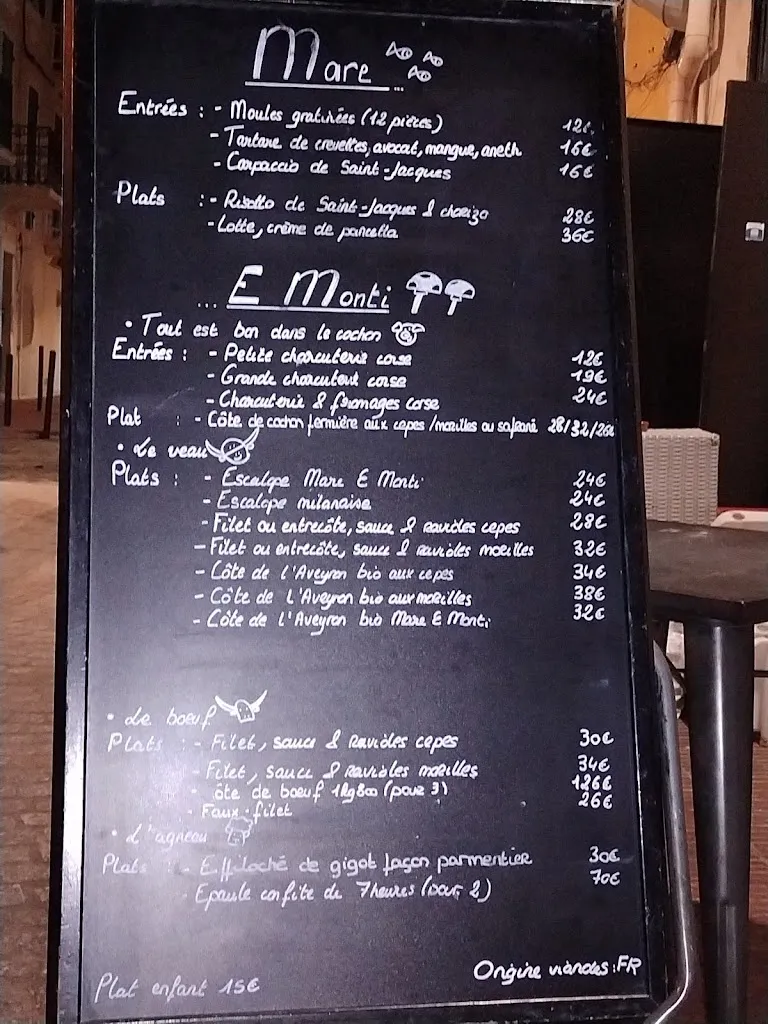 Mare ...
Entrées : - Moules gratinées (12 pièces) 12€
- Tartare de crevettes, avocat, mangue, aneth 16€
- Carpaccio de Saint-Jacques 16€
Plats : - Risotto de Saint-Jacques & chorizo 28€
- Lotte, crème de pancetta 36€
... E Monti
• Tout est bon dans le cochon
Entrées : - Petite charcuterie corse 12€
- Grande charcuterie corse 19€
- Charcuterie & fromages corse 24€
Plat : - Côte de cochon fermière aux cepes /morilles ou safrané 28/32/26€
• Le veau
Plats : - Escalope Mare E Monti 24€
- Escalope milanaise 24€
- Filet ou entrecôte, sauce & ravioles cepes 28€
- Filet ou entrecôte, sauce & ravioles morilles 32€
- Côte de l'Aveyron bio aux cepes 34€
- Côte de l'Aveyron bio aux morilles 38€
- Côte de l'Aveyron bio Mare E Monti 32€
• Le boeuf
Plats : - Filet, sauce & Ravioles cepes 30€
- Filet, sauce & Ravioles morilles 34€
- ôte de boeuf 1kg800 (pour 3) 126€
- Faux-filet 26€
• L'agneau
Plats : - Effiloché de gigot façon parmentier 30€
- Epaule confite de 7heures (pour 2) 70€
Origine viandes : FR
Plat enfant 15€